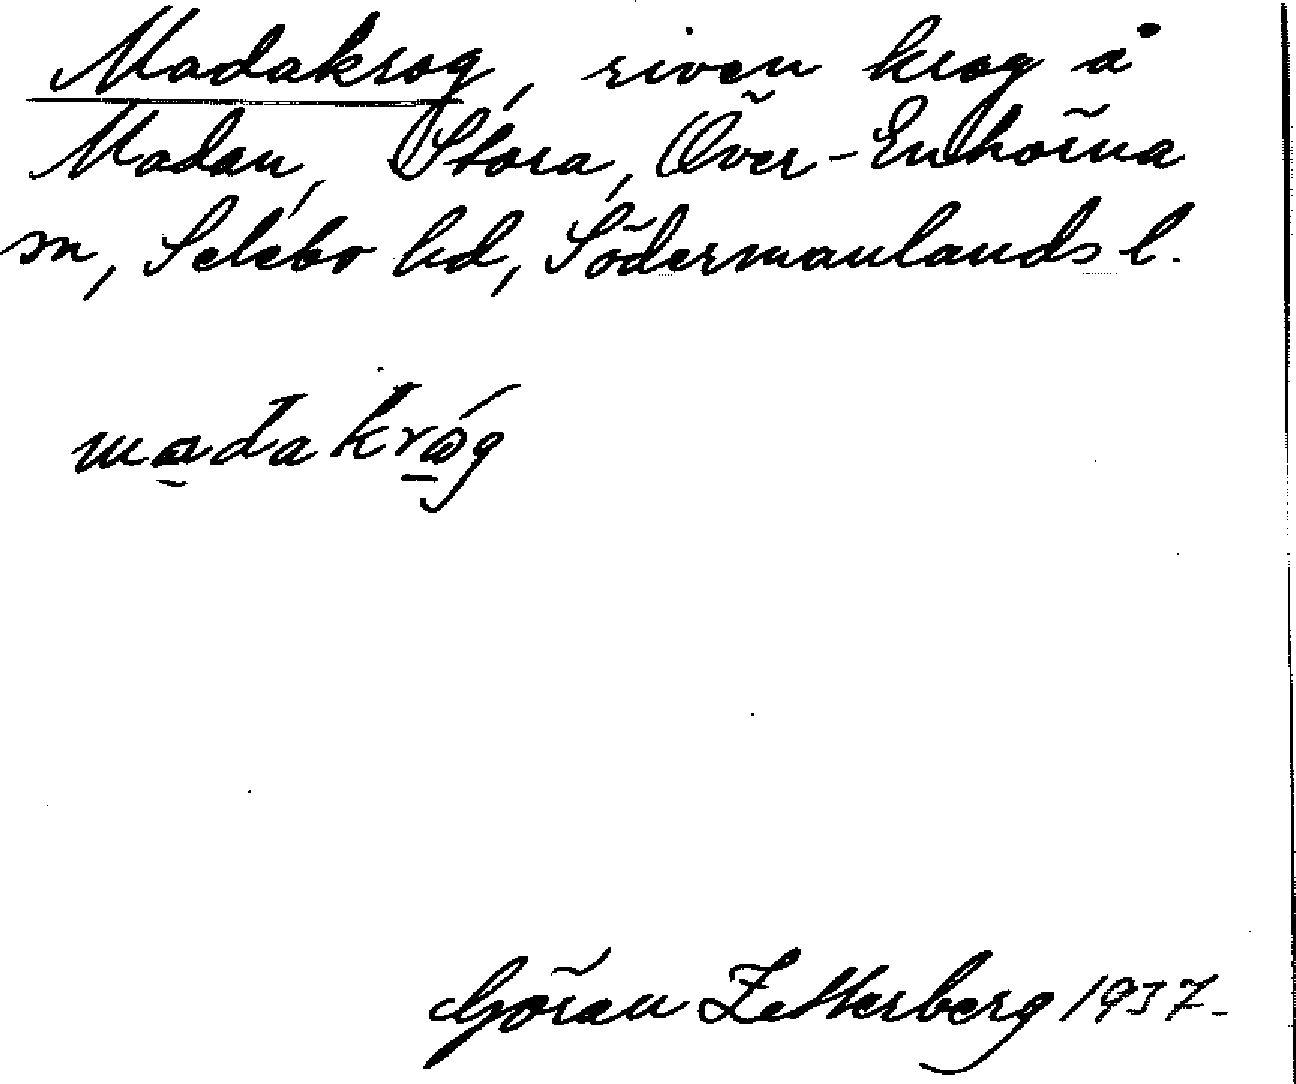 Madakrog, riven krog å
Madan, Stora, Över-Enhörna
sn, Selebo hd, Södermanlands l.
madakrǻg
Göran Zetterberg 1937-